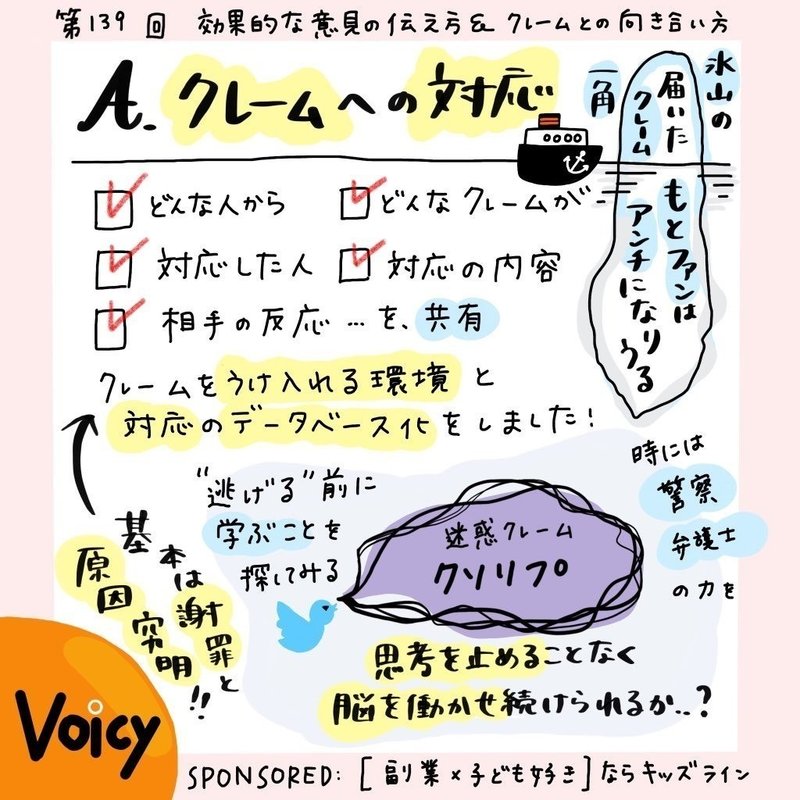 第139回 効果的な意見の伝え方& クレームとの向き合い方
A. クレームへの対応
氷山の
一角
届いた
クレーム
もとファンは
アンチになりうる
どんな人から
どんなクレームが
対応した人
対応の内容
相手の反応…を、共有
クレームをうけ入れる環境と
対応のデータベース化をしました!
基本は謝罪と
原因究明!!
"逃げる"前に
学ぶことを
探してみる
迷惑クレーム
クソリプ
時には
警察
弁護士
の力を
思考を止めることなく
脳を働かせ続けられるか..?
Voicy
SPONSORED: [副業×子ども好き]ならキッズライン